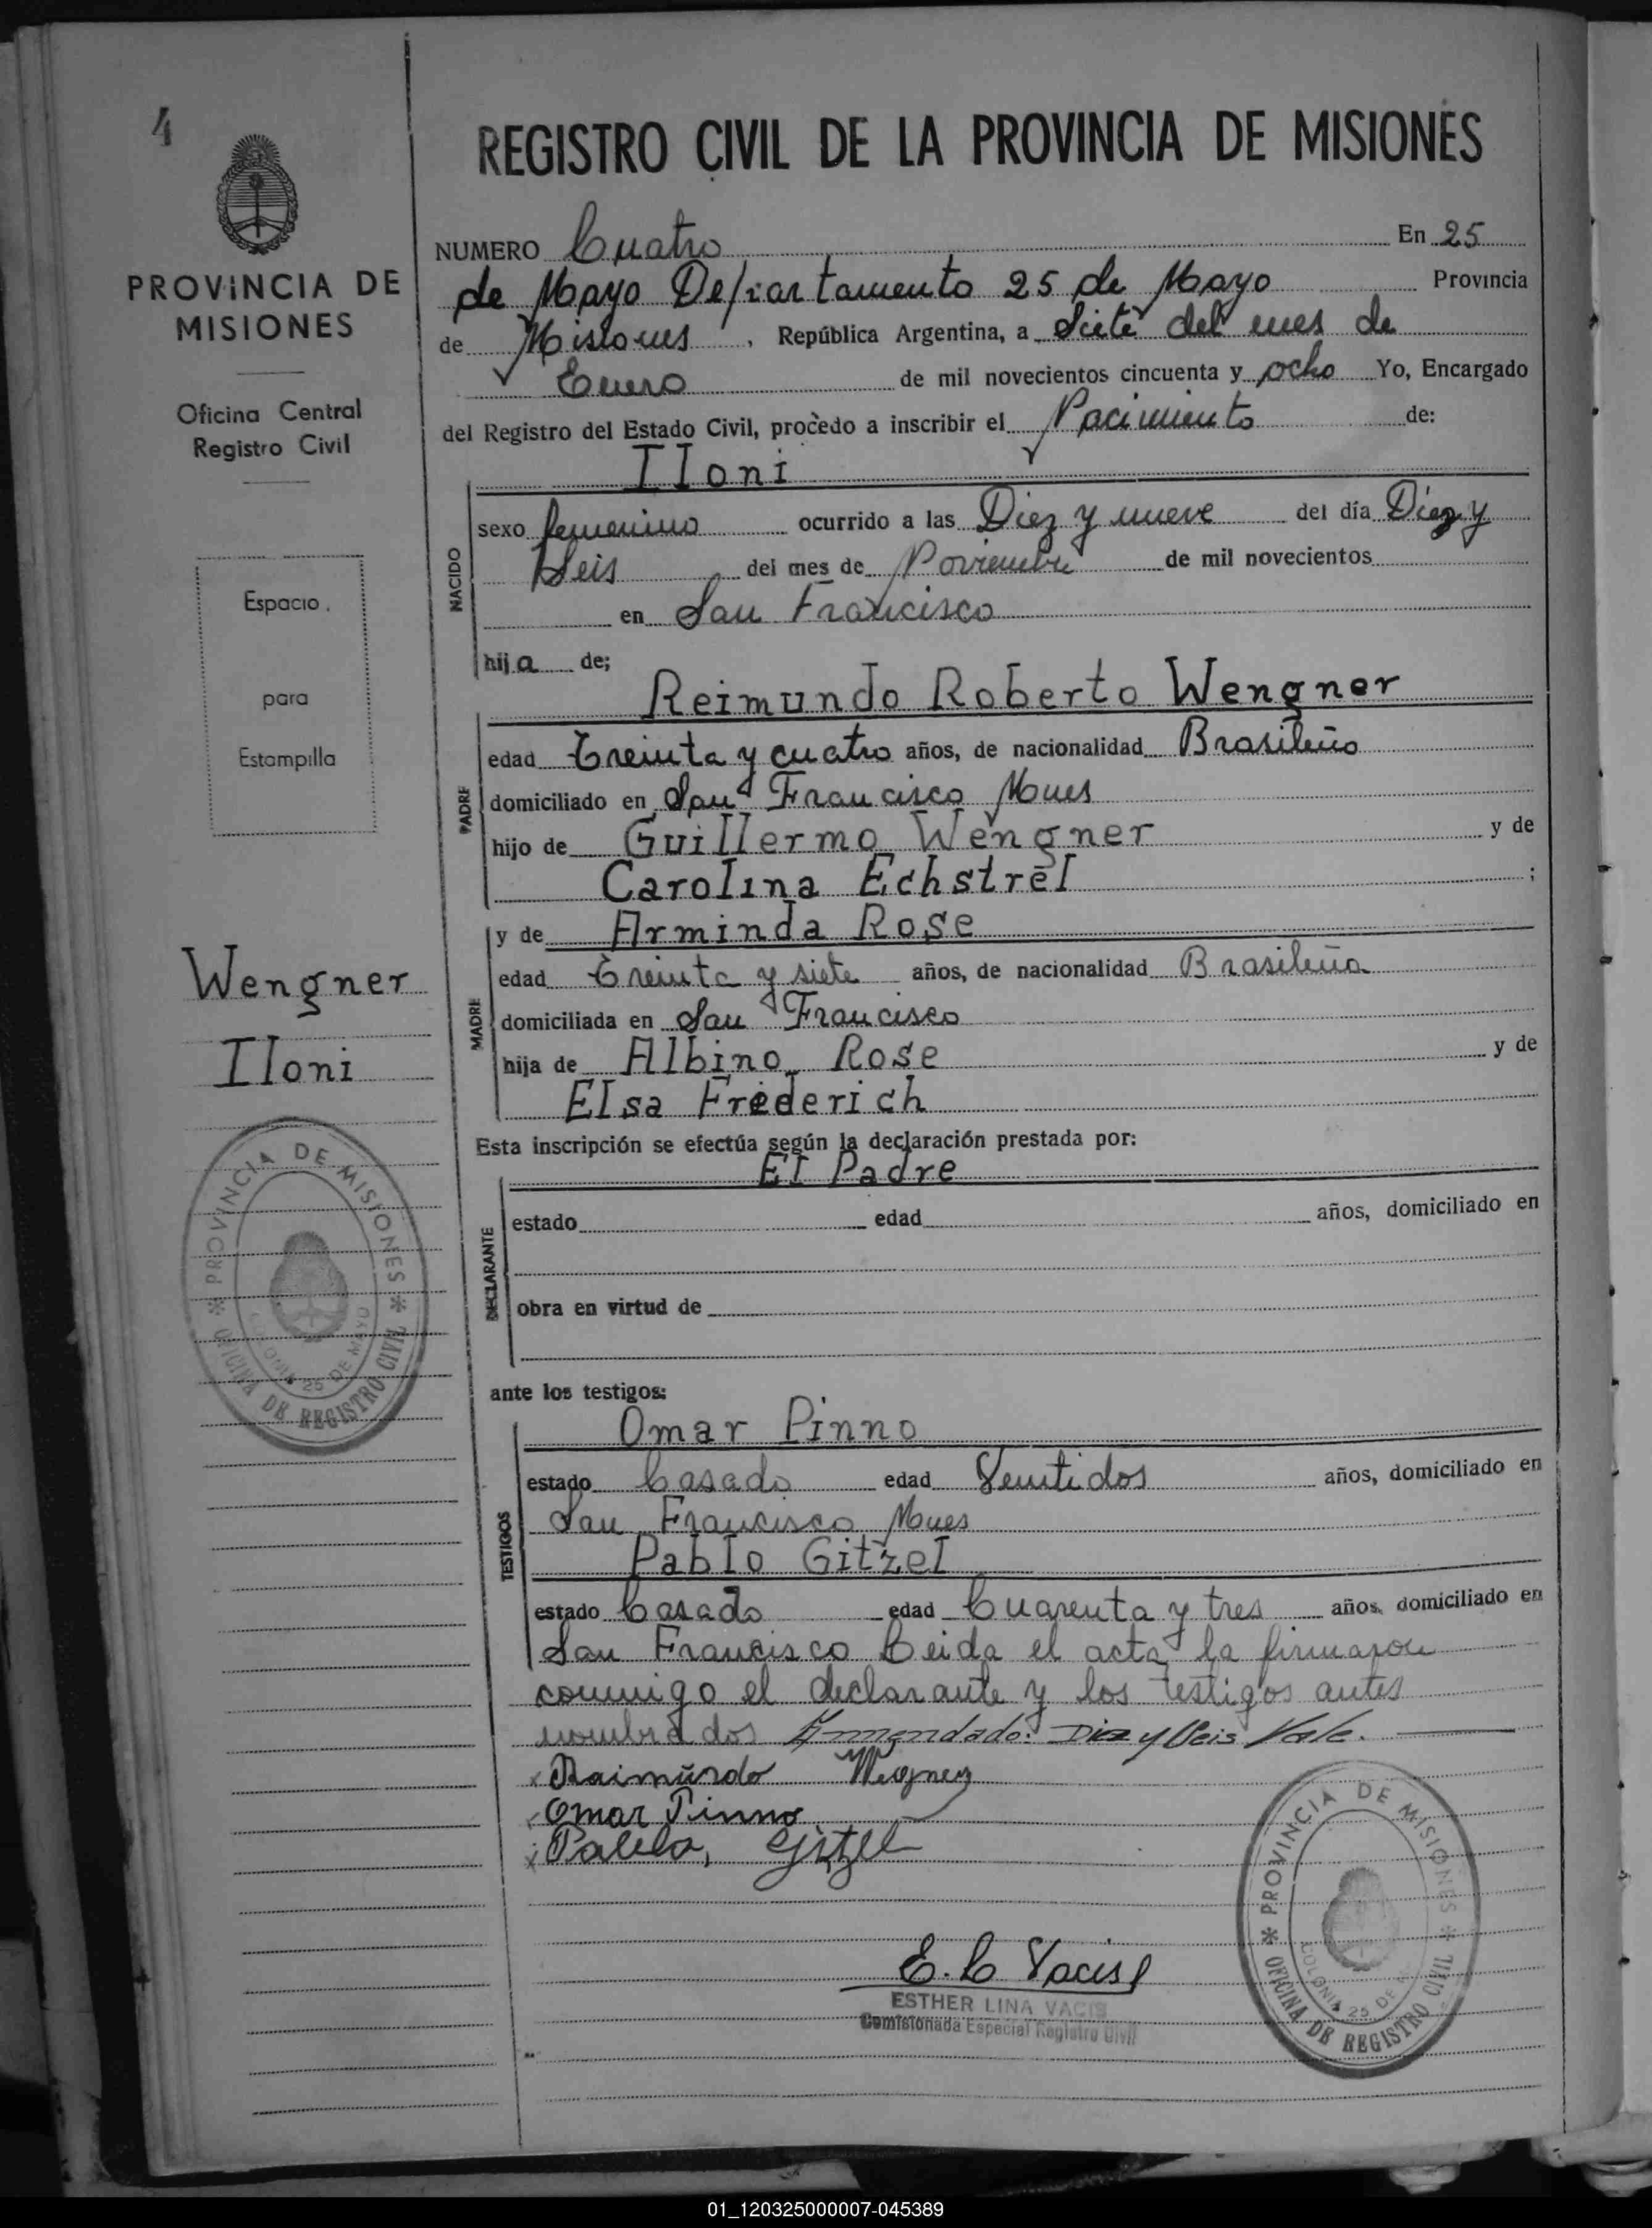 4
REGISTRO CIVIL DE LA PROVINCIA DE MISIONES
PROVINCIA DE
MISIONES
Oficina Central
Registro Civil
Espacio
para
Estampilla
Wengner
Iloni
PROVINCIA DE MISIONES
OFICINA DE REGISTRO CIVIL
COLONIA 25 DE MAYO
NUMERO Cuatro En 25
de Mayo Departamento 25 de Mayo Provincia
de Misiones, República Argentina, a Siete del mes de
Enero de mil novecientos cincuenta y ocho Yo, Encargado
del Registro del Estado Civil, procedo a inscribir el Nacimiento de:
Iloni
NACIDO
sexo femenino ocurrido a las Diez y nueve del día Diez y
Seis del mes de Noviembre de mil novecientos
en San Francisco
hija de;
Reimundo Roberto Wengner
PADRE
edad Treinta y cuatro años, de nacionalidad Brasileño
domiciliado en San Francisco Mnes
hijo de Guillermo Wengner y de
Carolina Echstrel ;
y de Arminda Rose
MADRE
edad Treinta y siete años, de nacionalidad Brasileña
domiciliada en San Francisco
hija de Albino Rose y de
Elsa Frederich
Esta inscripción se efectúa según la declaración prestada por:
El Padre
DECLARANTE
estado edad años, domiciliado en
obra en virtud de
ante los testigos:
Omar Pinno
TESTIGOS
estado Casado edad Veintidos años, domiciliado en
San Francisco Mnes
Pablo Gitzel
estado Casado edad Cuarenta y tres años, domiciliado en
San Francisco Leida el acta la firmaron
conmigo el declarante y los testigos antes
nombrados Enmendado: Diez y Seis Vale.
Raimundo Wegner
Omar Pinno
Pablo, Gitzel
E. L Vacis
ESTHER LINA VACIS
Comisionada Especial Registro Civil
PROVINCIA DE MISIONES
OFICINA DE REGISTRO CIVIL
COLONIA 25 DE
01_120325000007-045389